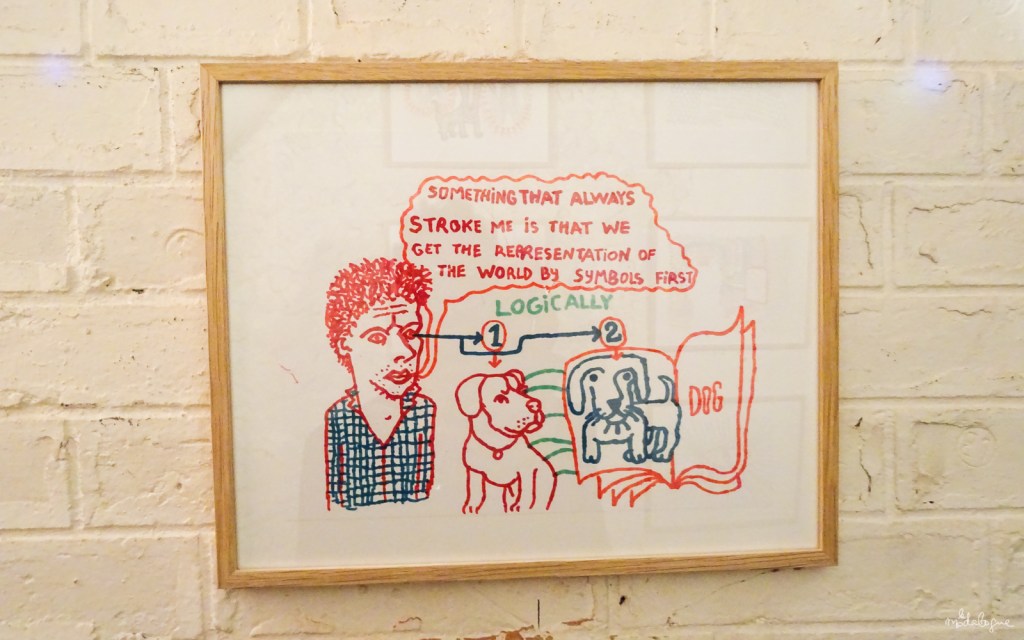 SOMETHING THAT ALWAYS
STROKE ME IS THAT WE
GET THE REPRESENTATION OF
THE WORLD BY SYMBOLS FIRST
LOGICALLY
1 2
DOG